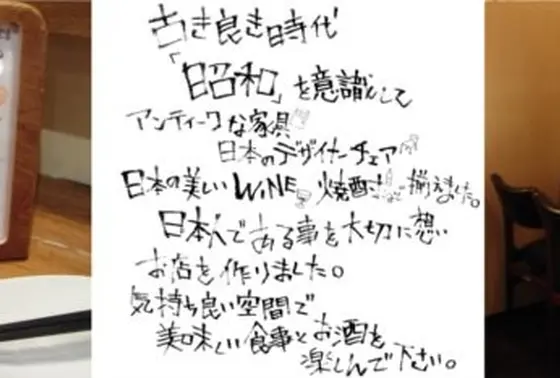 古き良き時代
「昭和」を意識して
アンティークな家具
日本のデザイナーチェア
日本の美しいWINE 焼酎など揃えました。
日本人である事を大切に想い
お店を作りました。
気持ち良い空間で
美味しい食事とお酒を
楽しんで下さい。